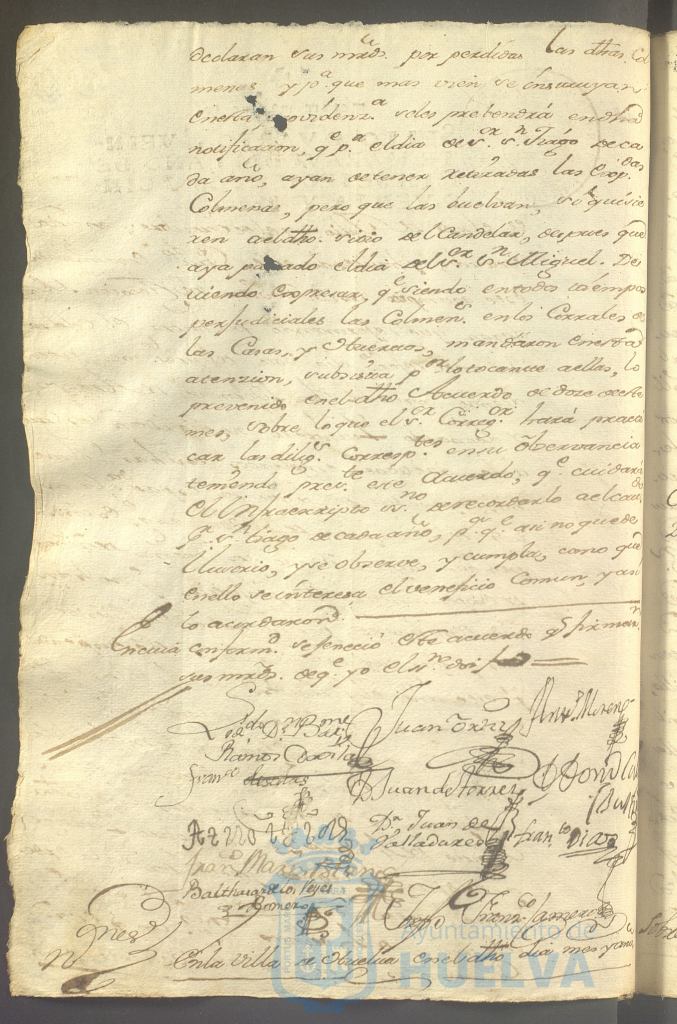 declaran sus mrds. por perdidas las dhas. Col
menas y pa. que mas vien se instruyan
en esta providenza. seles prebendrá en dha
notificazion, qe. pa. el dia de sor. sn. Tiago de ca
da año, ayan de tener retiradas las exp.das
Colmenas, pero que las buelvan, si quisie
ren a el dho. sitio del Candelar, despues que
aya pasado el dia del sor. sn. Miguel. De
viendo expresar, qe. siendo en todos tiempos
perjudiciales las Colmens. en los Corrales de
las Casas, y Huertas, mandaron en esta
atenzion, subsista por. lo tocante a ellas, lo
prevenido en el dho Acuerdo de doze de este
mes, sobre lo que el sor. Corregor. hará practi
car las diligs. Corresptes. en su observancia
teniendo preste. este Acuerdo, qe. cuidará
el Infraescripto sno. de recordarlo a el cavdo
pr. sn. tiago de cada año, pa. qe. asi no quede
Ilusorio, y se observe, y cumpla, como que
en ello se interesa el veneficio Comun, y asi
lo acordaron.
En cuia conformd. se feneció este acuerdo y firmaron.
sus mrds. de qe. yo el sno. doi fee
Lizdo. Dn. Bme.
Ramos Davila
Juan Ortiz
Anto. Moreno
Franco.
D Juan de torres
Dr. Juan de
Valladares
Franco. Diaz
Fran. Mar
Balthasar de los Reyes
y Romero
Franco. Jamero
En la Villa de Huelva en el dho dia mes y año
Ayuntamiento de
HUELVA